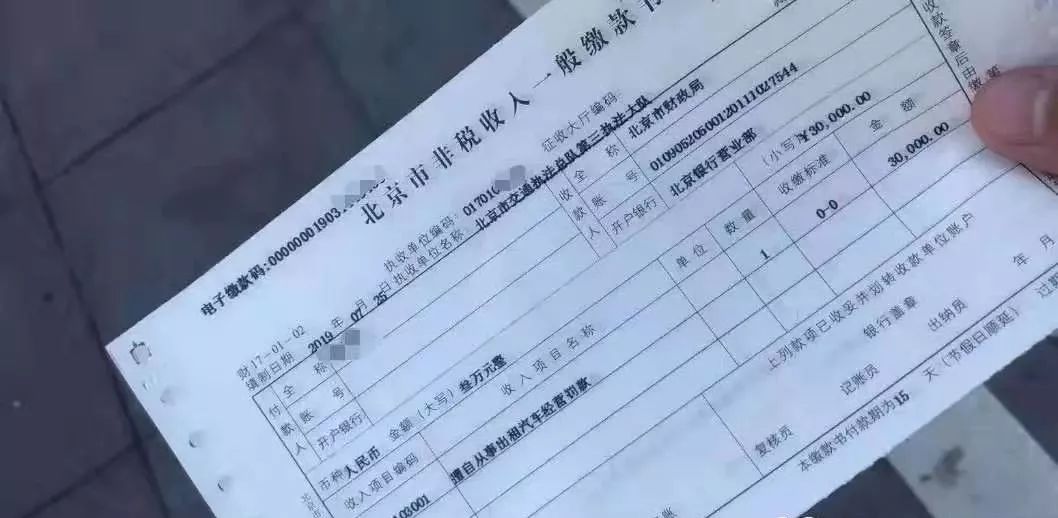 北京市非税收入一般缴款书
电子缴款码:00000001903
财17-01-02
执收单位编码:01701
征收大厅编码:
填制日期 2019 年 07 月 25 日
执收单位名称:北京市交通执法总队第三执法大队
付款人
全 称
账 号
开户银行
收款人
全 称
北京市财政局
账 号
01090520500120111027544
开户银行
北京银行营业部
币种 人民币 金额(大写)叁万元整
(小写)¥30,000.00
收入项目编码
收入项目名称
单位
数量
收缴标准
金 额
103001
擅自从事出租汽车经营罚款
1
0-0
30,000.00
上列款项已收妥并划转收款单位账户
银行盖章
年 月
复核员
记账员
出纳员
本缴款书付款期为15 天(节假日顺延)
收款签章后由缴